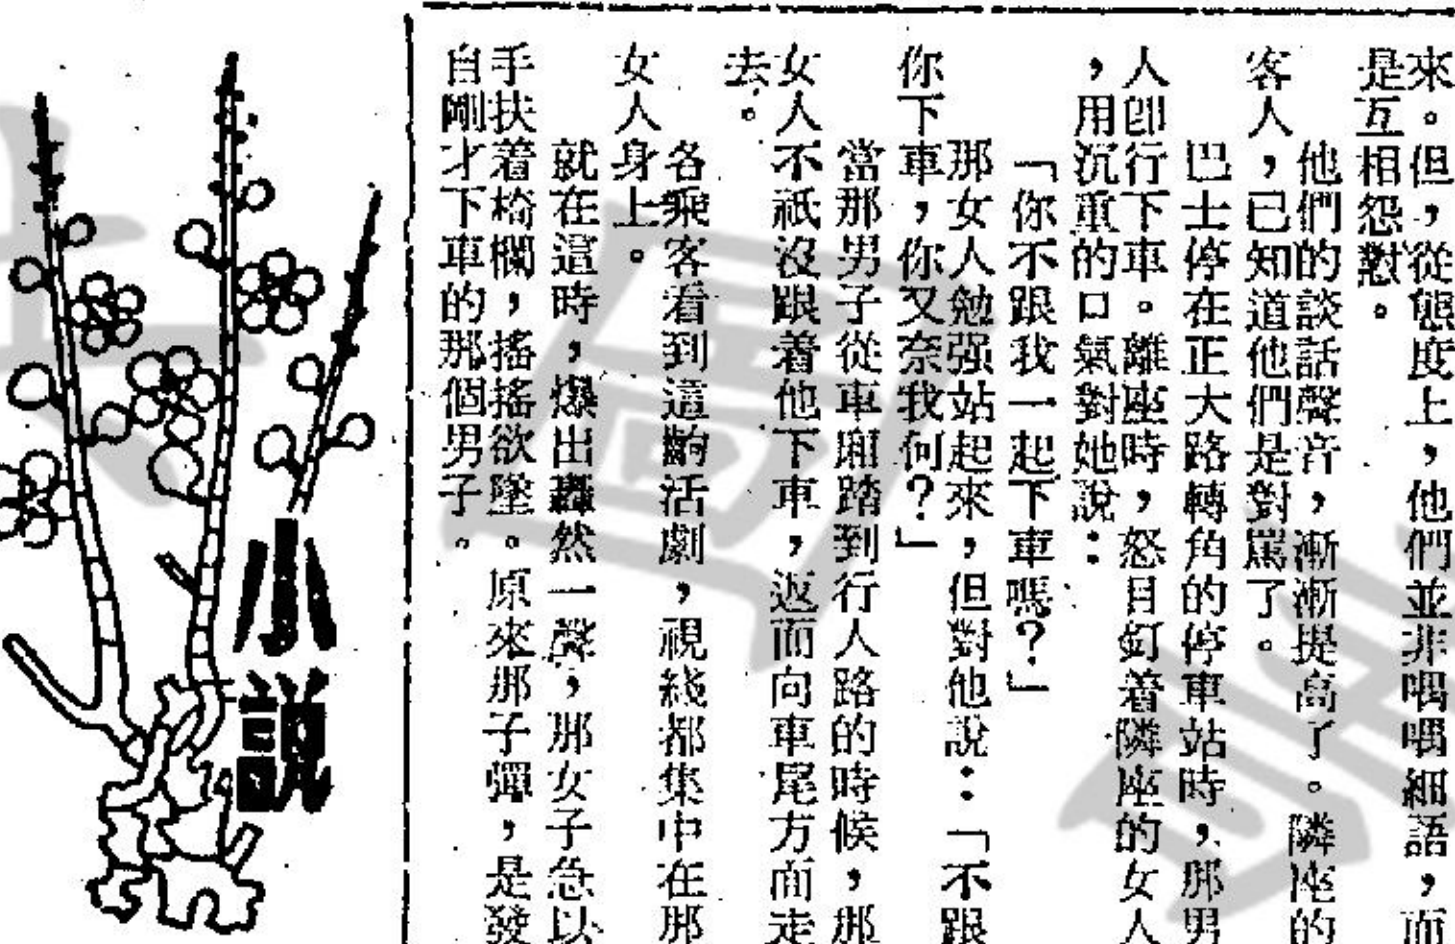 來。但，從態度上，他們並非喁喁細語，而
是互相怨懟。
他們的談話聲音，漸漸提高了。隣座的
客人，已知道他們是對罵了。
巴士停在正大路轉角的停車站時，那男
人卽行下車。離座時，怒目釘着隣座的女人
，用沉重的口氣對她說：
「你不跟我一起下車嗎？」
那女人勉强站起來，但對他說：「不跟
你下車，你又奈我何？」
當那男子從車廂踏到行人路的時候，那
女人不祇沒跟着他下車，返而向車尾方面走
去。
各乘客看到這齣活劇，視綫都集中在那
女人身上。
就在這時，爆出轟然一聲，那女子急以
手扶着椅欄，搖搖欲墜。原來那子彈，是發
自剛才下車的那個男子。
小說